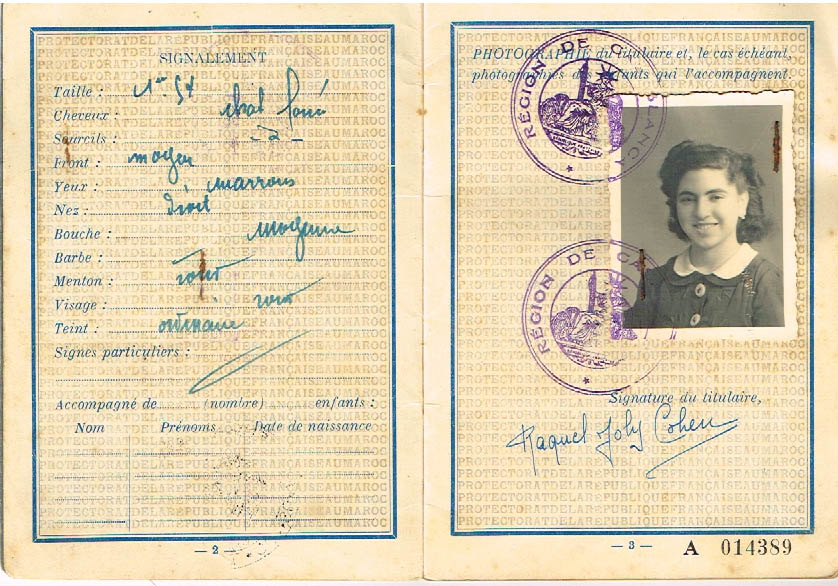 SIGNALEMENT
Taille : 1m 54
Cheveux : chat foncé
Sourcils : -d°-
Front : moyen
Yeux : marrons
Nez : droit
Bouche : moyenne
Barbe :
Menton : rond
Visage : rond
Teint : ordinaire
Signes particuliers :
Accompagné de (nombre) enfants :
Nom Prénoms Date de naissance
— 2 —
PHOTOGRAPHIE du titulaire et, le cas échéant,
photographies des enfants qui l'accompagnent.
RÉGION DE C BLANCA
RÉGION DE CA
Signature du titulaire,
Raquel Joly Cohen
— 3 — A 014389
PROTECTORAT DE LA RÉPUBLIQUE FRANÇAISE AU MAROC